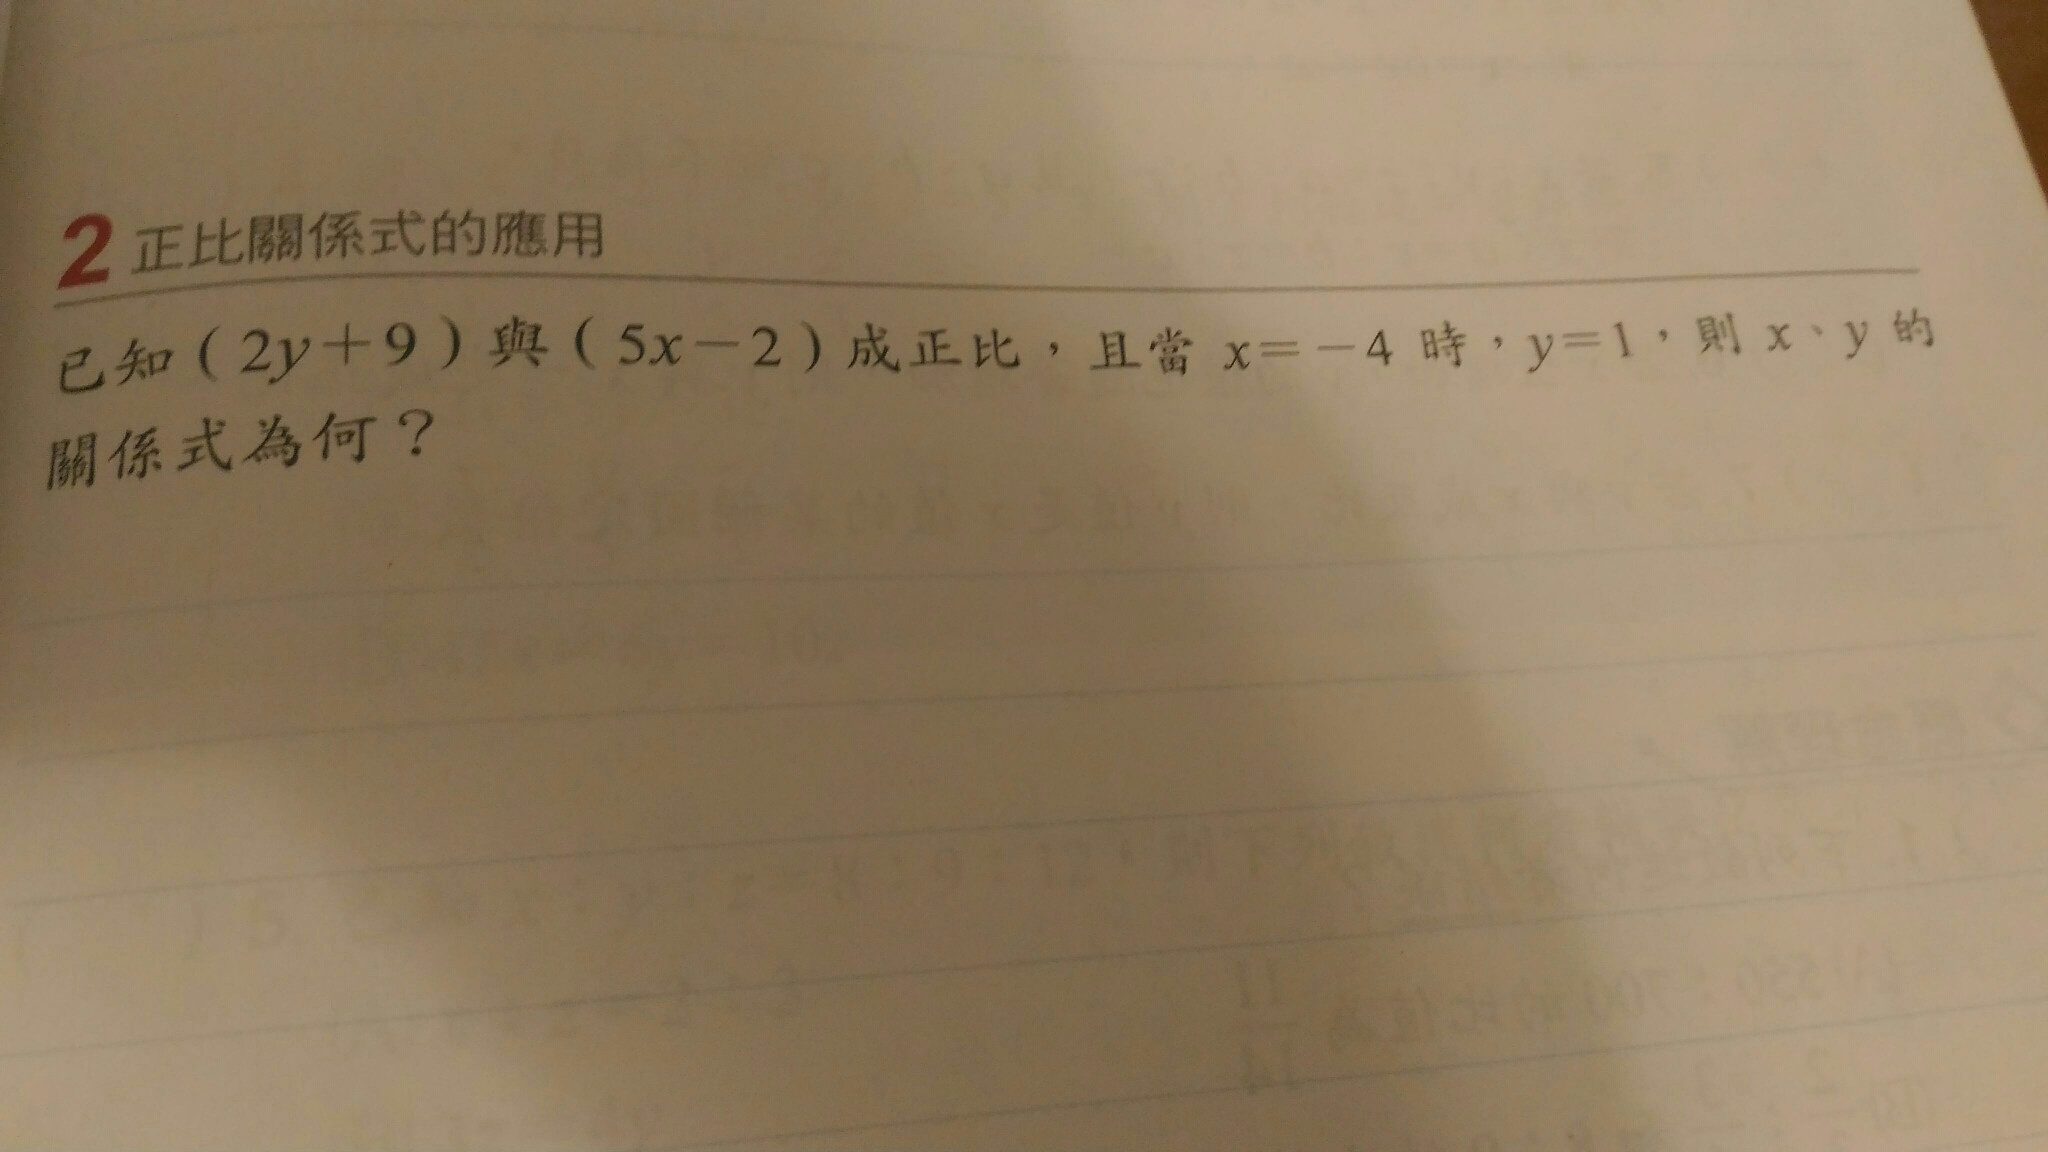 2 正比關係式的應用
已知(2y+9)與(5x-2)成正比,且當 x=-4 時,y=1,則 x、y 的
關係式為何?